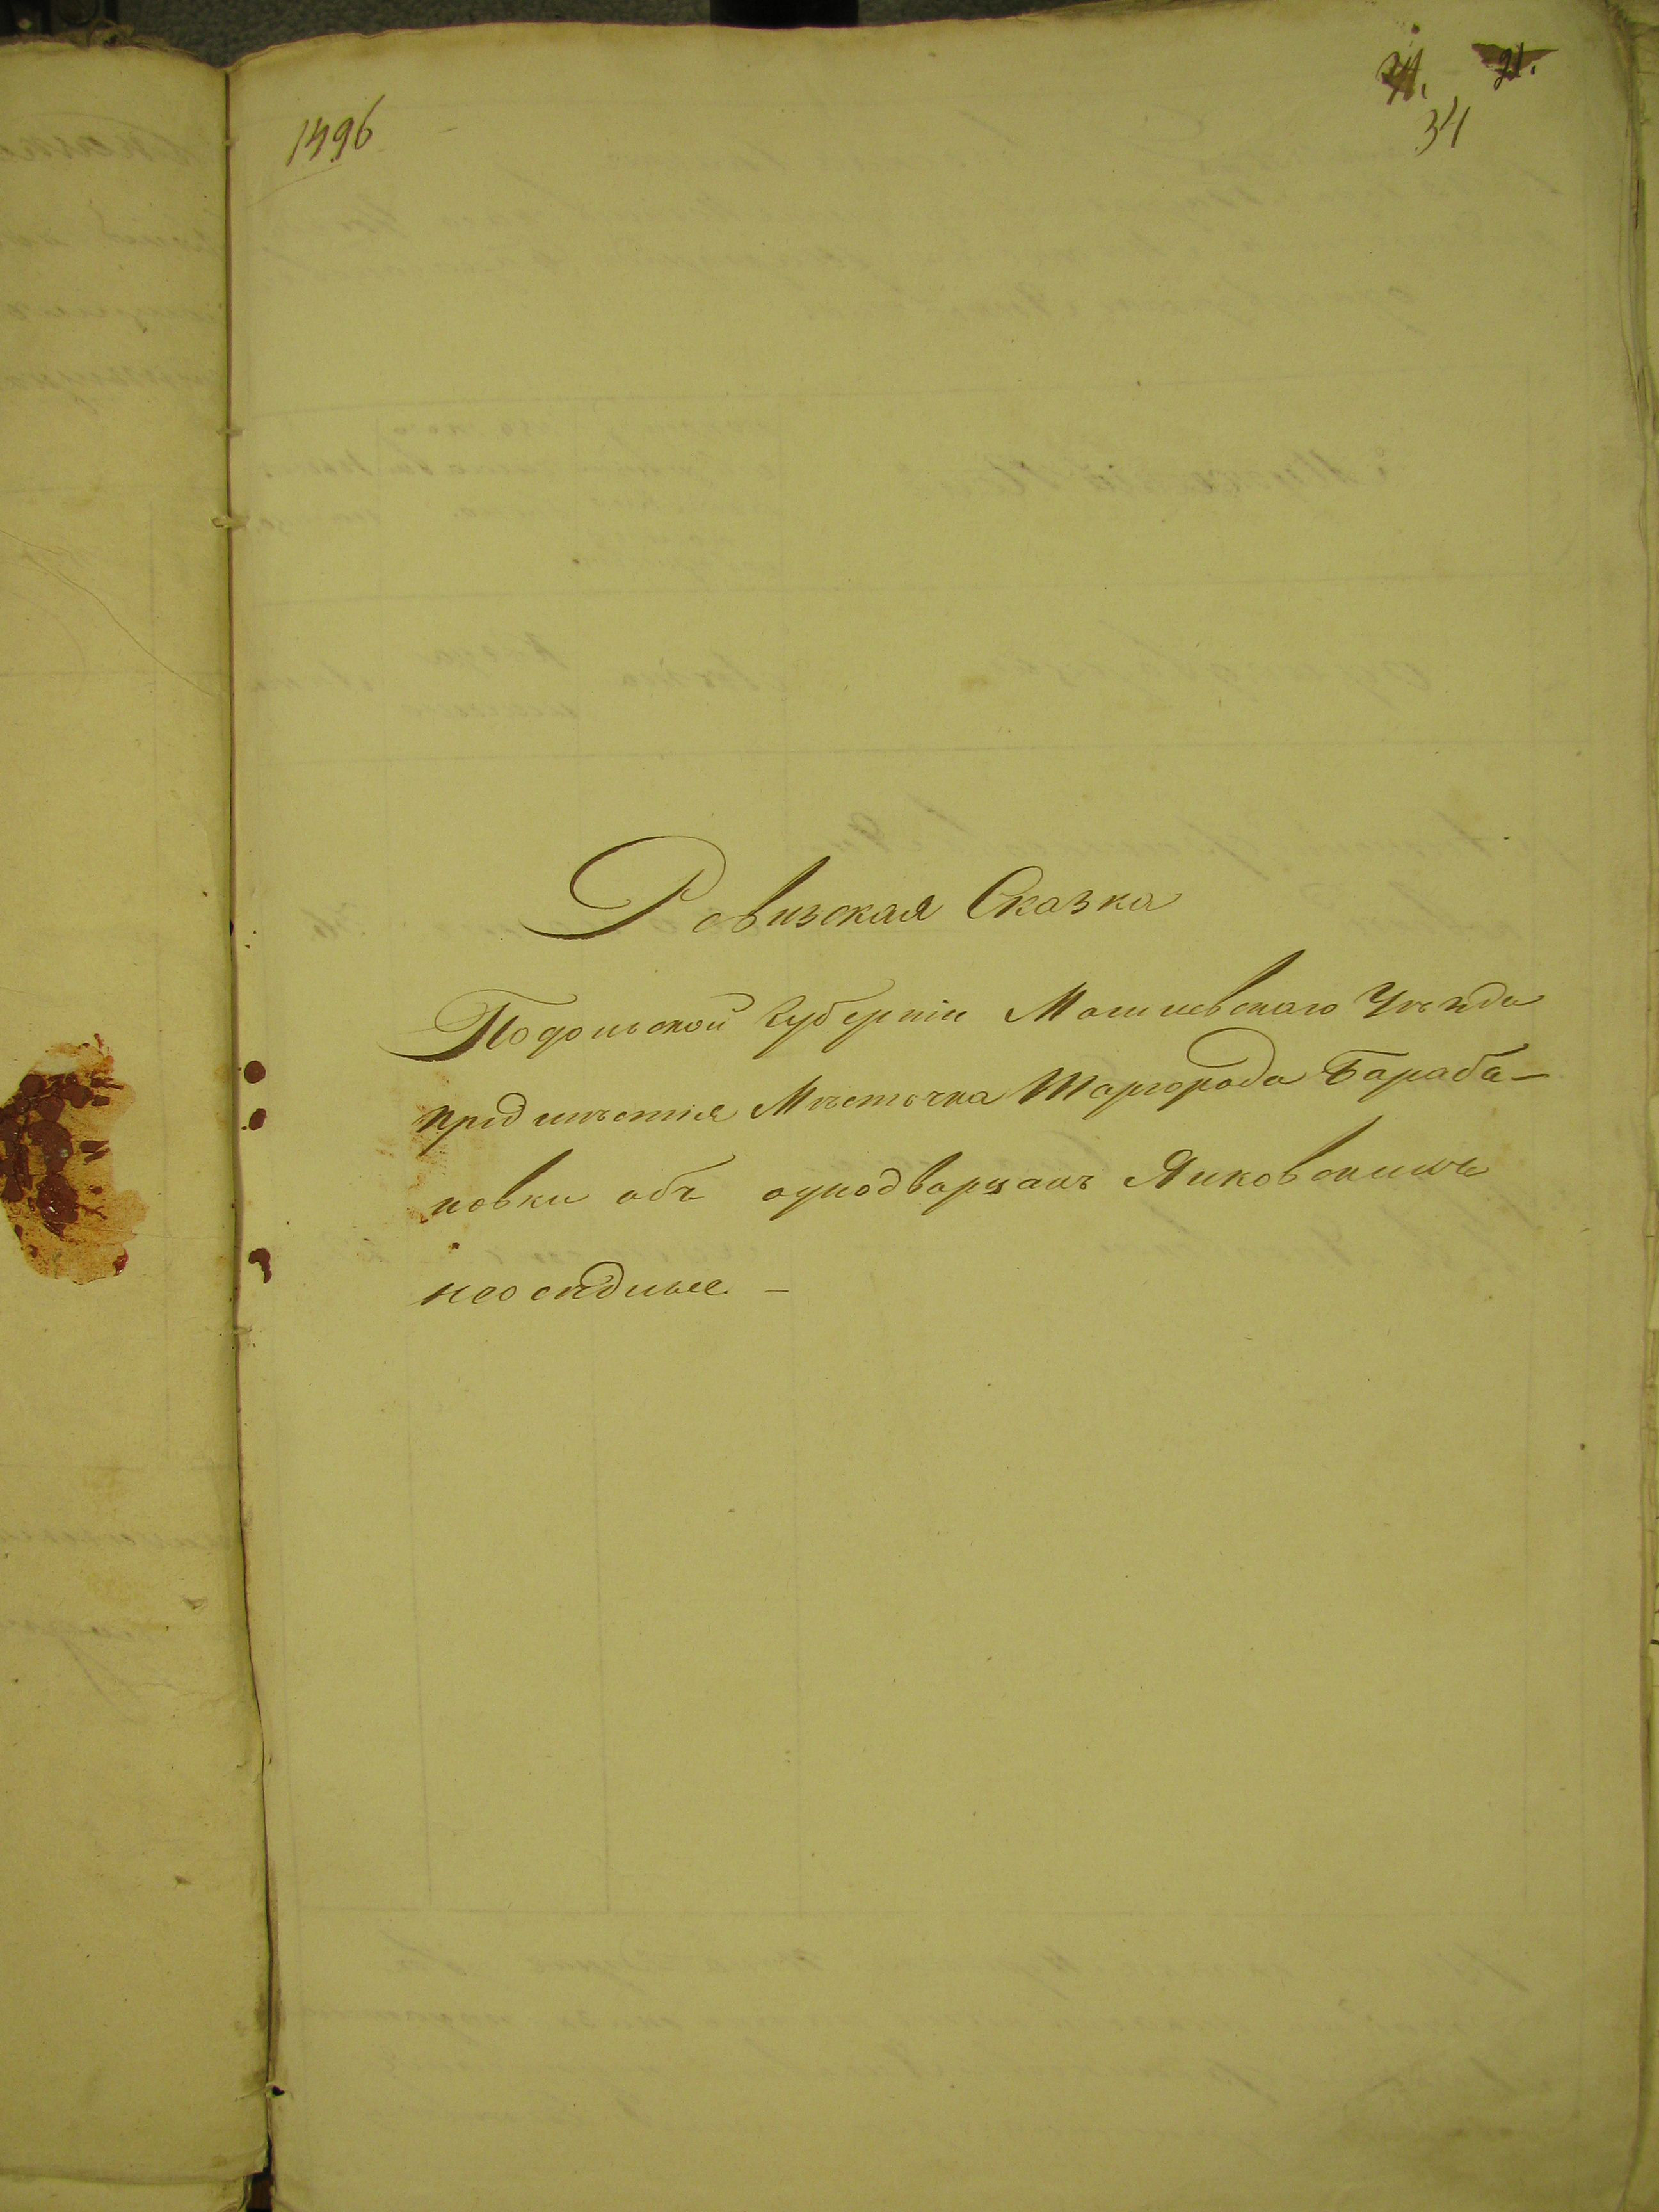 1496
34
Ревизская Сказка
Подольской Губерніи Могилевскаго Уѣзда
предмѣстія Мѣстечка Шаргорода Бараба-
новки объ однодворцахъ Янковскихъ
неосѣдлые. -